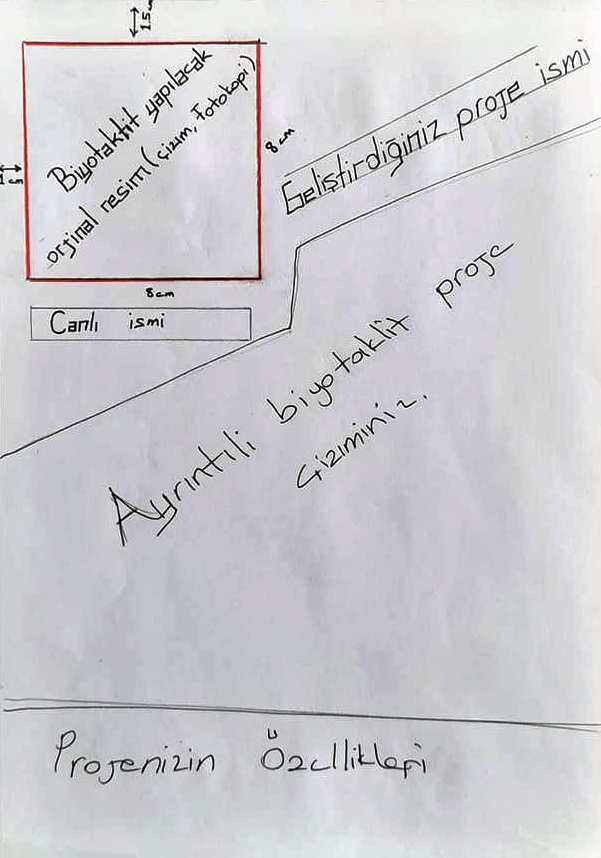 1.5 cm
Biyotaklit yapılacak
orjinal resim (çizim, Fotokopi)
1 cm
8 cm
8 cm
Canlı ismi
Geliştirdiğiniz proje ismi
Ayrıntılı biyotaklit proje
çiziminiz.
Projenizin Özellikleri